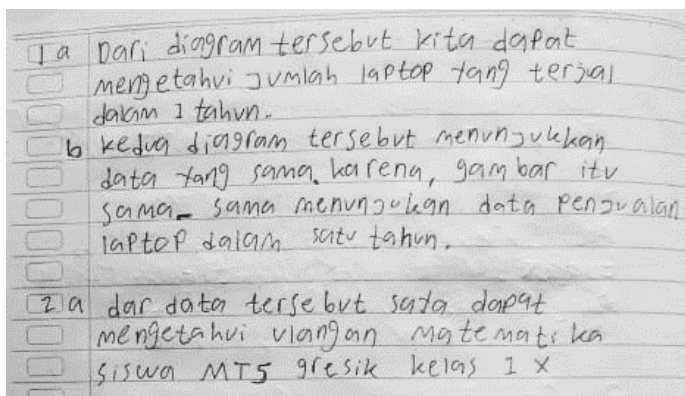 1 a Dari diagram tersebut kita dapat
mengetahui jumlah laptop yang terjal
dalam 1 tahun.
b kedua diagram tersebut menunjukkan
data yang sama. karena, gambar itu
sama-sama menunjukan data penjualan
laptop dalam satu tahun.
2 a dar data tersebut saya dapat
mengetahui ulangan matematika
siswa MTS gresik kelas IX